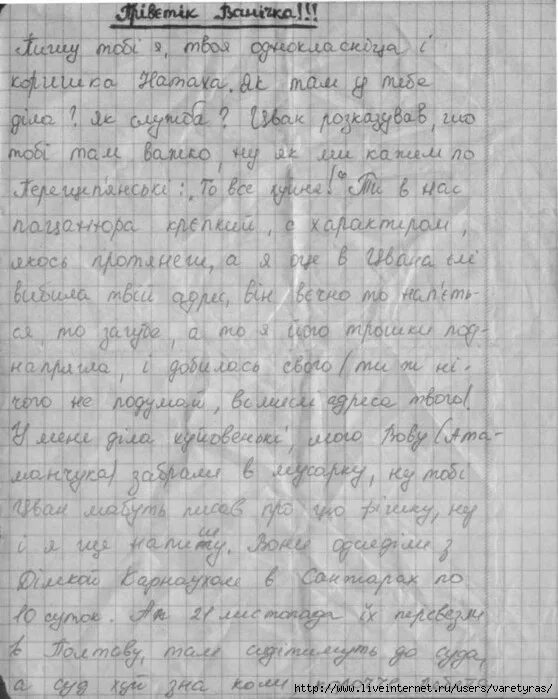 Прівєтік Ванічка!!!
Пишу тобі я, твоя однокласніца і
коришка Натаха. Як там у тебе
діла? Як служба? Іван розказував, шо
тобі там важко, ну як ми кажем по
Перещип'янські: „То все хуйня!“ Ти в нас
пацанюра крєпкий, с характером,
якось протянеш, а я оце в Івана єлі
вибила твій адрес, він вєчно то нап'єть-
ся, то загубе, а то я його трошки под-
напрягла, і добилась свого (ти ж ні-
чого не подумай, всмислі адреса твого).
У мене діла хуйовенькі, мого Вову (Ата-
манчука) забрали в мусарку, ну тобі
Іван мабуть писав про цю фішку, ну
і я ще напишу. Вони одсиділи з
Дімкой Карнаухом в Санжарах по
10 суток. А 21 листопада їх перевезли
в Полтаву, там сидітимуть до суда,
а суд хуй зна коли
http://www.liveinternet.ru/users/varetyras/